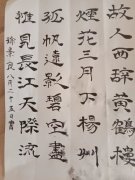 故人西辭黃鶴樓
煙花三月下楊州
孤帆遠影碧空盡
惟見長江天際流
八月二十五日書